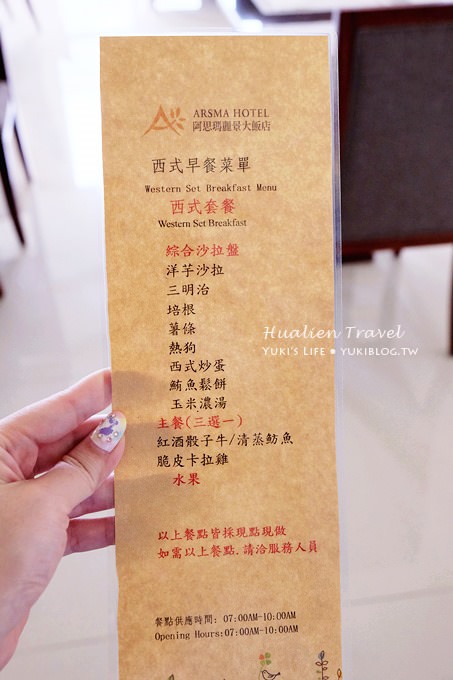 ARSMA HOTEL
阿思瑪麗景大飯店
西式早餐菜單
Western Set Breakfast Menu
西式套餐
Western Set Breakfast
綜合沙拉盤
洋芋沙拉
三明治
培根
薯條
熱狗
西式炒蛋
鮪魚鬆餅
玉米濃湯
主餐(三選一)
紅酒骰子牛/清蒸魴魚
脆皮卡拉雞
水果
以上餐點皆採現點現做
如需以上餐點,請洽服務人員
餐點供應時間: 07:00AM-10:00AM
Opening Hours:07:00AM-10:00AM
Hualien Travel
YUKI'S LIFE • YUKIBLOG.TW